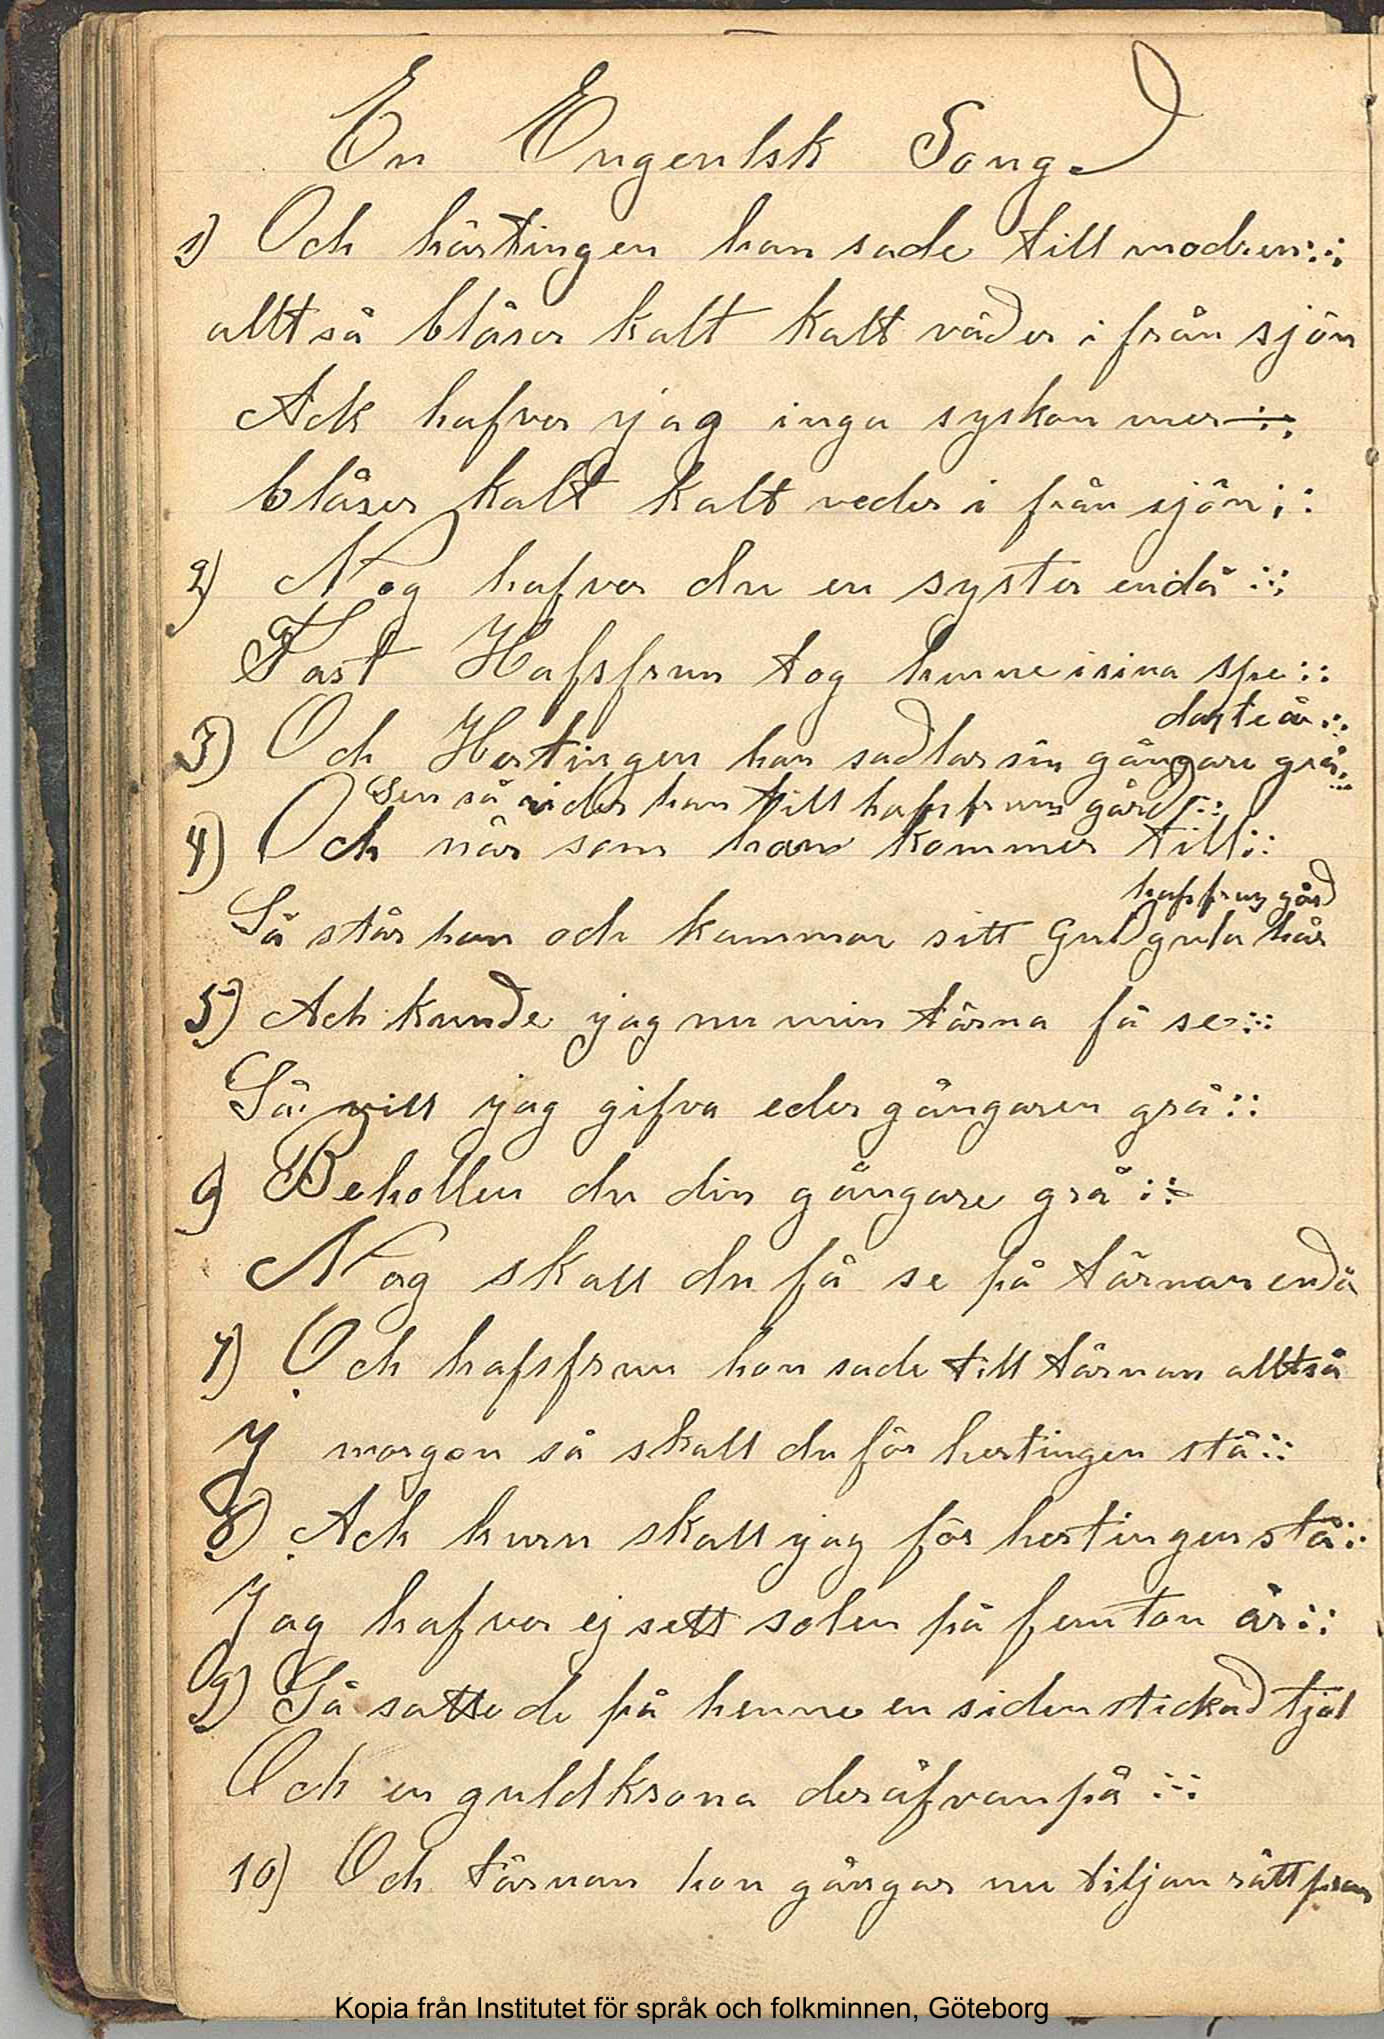 En Engenlsk Song.
1) Och härtingen han sade till modren :;:
allt så blåser kalt kalt väder i från sjön
Ack hafver jag inga syskon mer :;:
blåser kalt kalt veder i från sjön :;:
2) Nog hafver du en syster endå :;:
Fast Hafsfrun tog henne i sina spe ::
daste år :;:
3) Och Hertingen han sadlar sin gångare grå :;:
Sen så rider han till hafsfruns gård :;:
4) Och når som han kommer till ::
hafsfruns gård
Så står hon och kammar sitt Guldgula hår
5) Ach kunde jag nu min tårna få se :;:
Så vill jag gifva eder gångaren grå ::
6) Behollen du din gångare grå :;:
Nog skall du få se på tårnan endå
7) Och hafsfrun hon sade till tårnan alltså
I morgon så skall du för hertingen stå :;:
8) Ach huru skall jag för hertingen stå ::
Jag hafver ej sett solen på femton år ::
9) Så satte de på henne en sidenstickad tjol
Och en guldkrona deråfvanpå :;:
10) Och tårnan hon gångar nu tiljan rått fram
Kopia från Institutet för språk och folkminnen, Göteborg